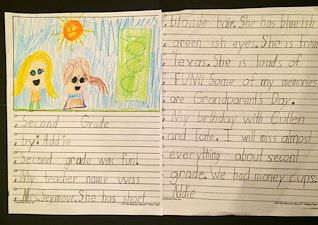 Second Grade
By: Addie
Second grade was fun.
My teacher name was
Mrs. Seymour. She has short
blonde hair. She has blue ish
green ish eyes. She is from
Texas. She is loads of
FUN!! Some of my memories
are Grandparent's Day.
My birthday with Cullen
and Tate. I will miss almost
everything about secont
grade. We had money cups.
Addie